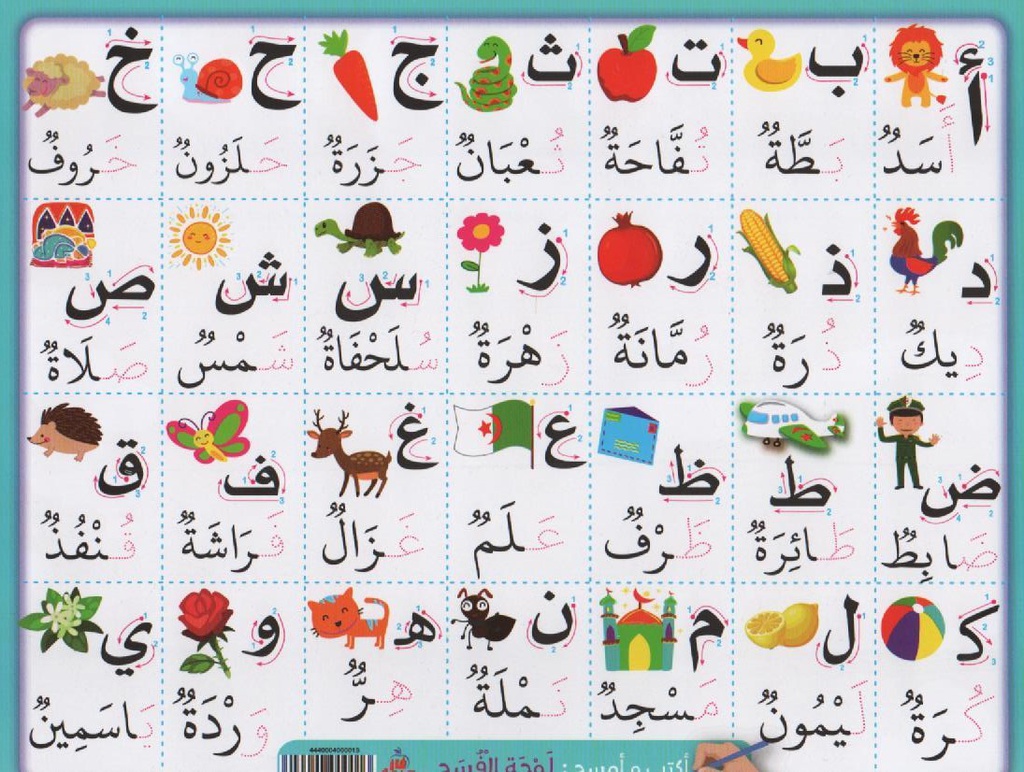 أ ب ت ث ج ح خ
أَسَدٌ بَطَّةٌ تُفَّاحَةٌ ثُعْبَانٌ جَزَرَةٌ حَلَزُونٌ خَرُوفٌ
د ذ ر ز س ش ص
دِيكٌ ذُرَةٌ رُمَّانَةٌ زَهْرَةٌ سُلَحْفَاةٌ شَمْسٌ صَلَاةٌ
ض ط ظ ع غ ف ق
ضَابِطٌ طَائِرَةٌ ظَرْفٌ عَلَمٌ غَزَالٌ فَرَاشَةٌ قُنْفُذٌ
ك ل م ن ه و ي
كُرَةٌ لَيْمُونٌ مَسْجِدٌ نَمْلَةٌ هِرٌّ وَرْدَةٌ يَاسَمِينٌ
أكتب و أمسح : لَوْحَة الفُسَح
4440004000013